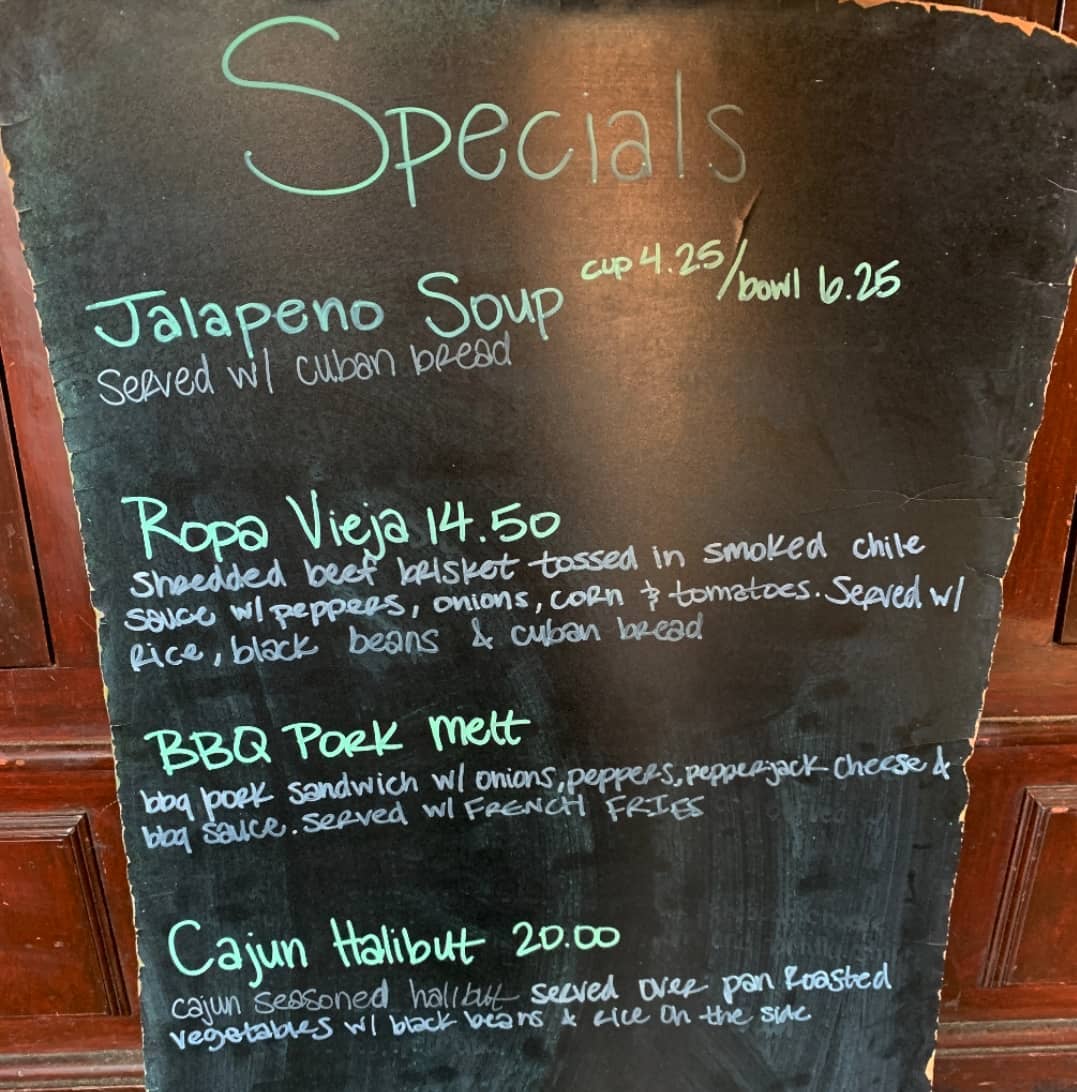 Specials
Jalapeno Soup cup 4.25/bowl 6.25
Served w/ cuban bread
Ropa Vieja 14.50
Shredded beef brisket tossed in smoked chile
sauce w/ peppers, onions, corn & tomatoes. Served w/
Rice, black beans & cuban bread
BBQ Pork melt
bbq pork sandwich w/ onions, peppers, pepperjack cheese &
bbq sauce. Served w/ FRENCH FRIES
Cajun Halibut 20.00
cajun seasoned halibut served over pan Roasted
vegetables w/ black beans & rice on the side